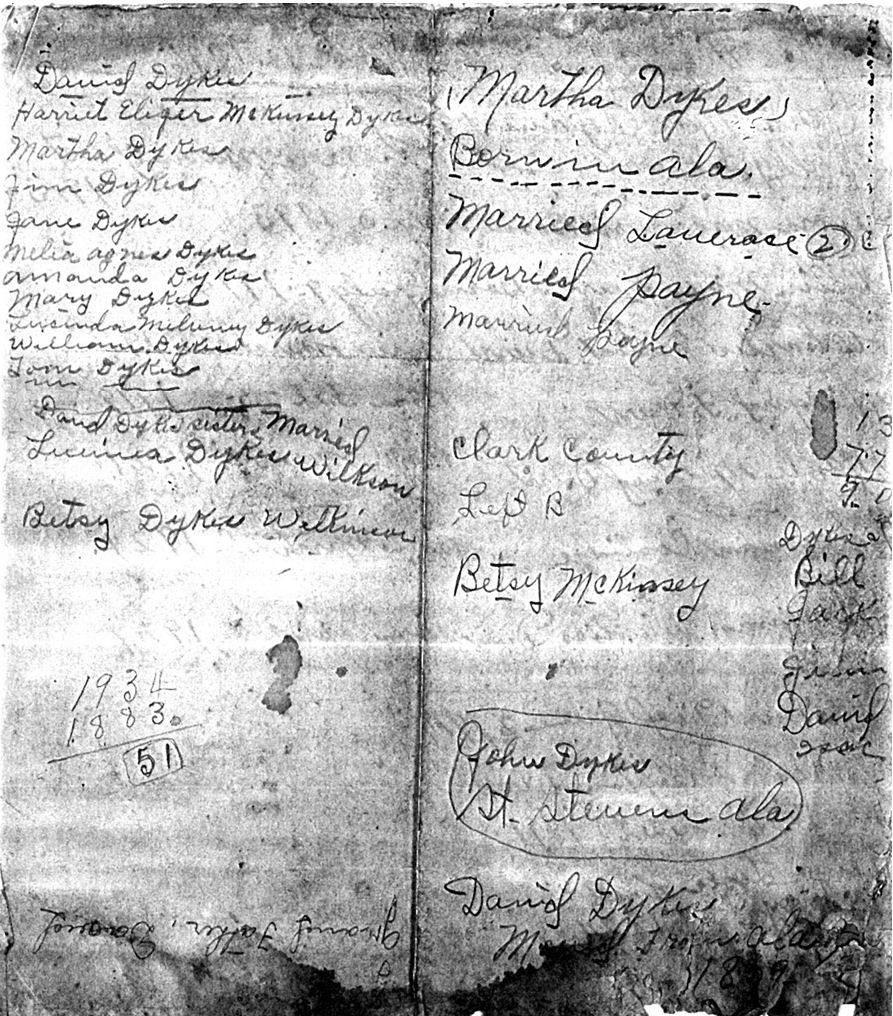 David Dykes
Harriet Elizer McKinsey Dykes
Martha Dykes
Jim Dykes
Jane Dykes
Melia agnes Dykes
amanda Dykes
Mary Dykes
Lucinda Melviney Dykes
William Dykes
Tom Dykes
David Dykes sister Married
Dykes Wilkson
Betsy Dykes Welkinson
1934
1883
51
grand Father, David
(Martha Dykes)
Born in Ala.
Married 2
Married Payne
Married Payne
Clark County
Left B
Betsy McKinsey
John Dykes
St. Stevens Ala
David Dykes
Moved From Ala
13
77
Dykes
Bill
Jack
Jim
David
Isac